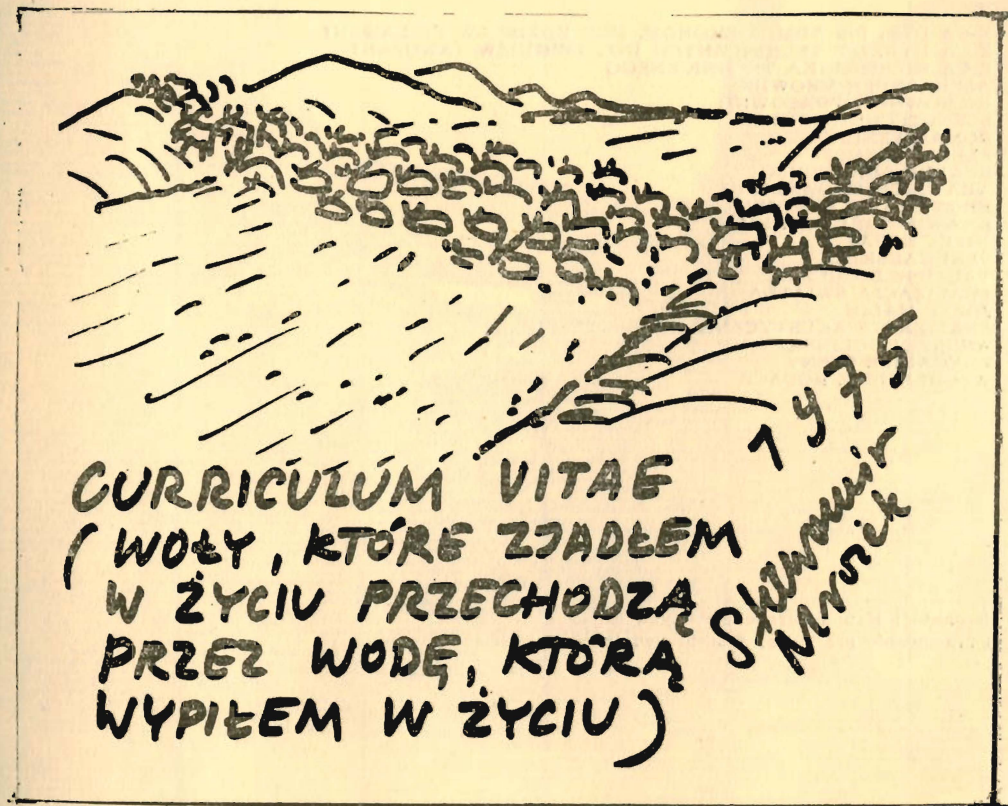 CURRICULUM VITAE
( WOŁY, KTÓRE ZJADŁEM
W ŻYCIU PRZECHODZĄ
PRZEZ WODĘ, KTÓRĄ
WYPIŁEM W ŻYCIU )
1975
Sławomir
Mrożek